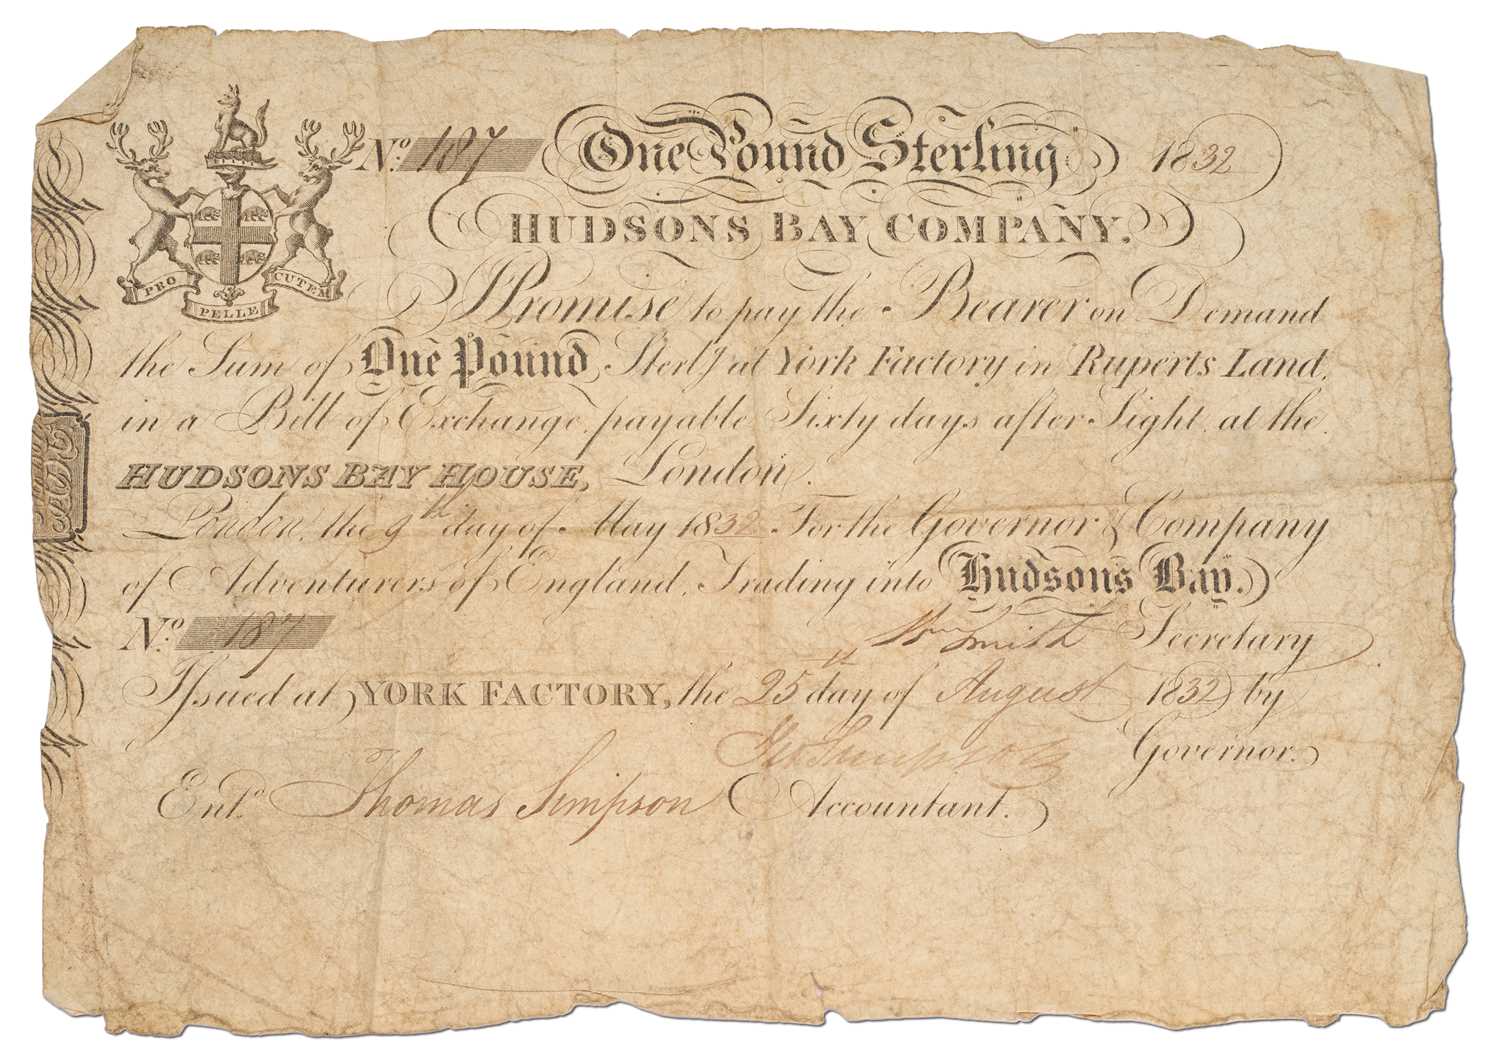 No. 187 One Pound Sterling 1832
HUDSONS BAY COMPANY.
PRO PELLE CUTEM
I Promise to pay the Bearer on Demand
the Sum of One Pound Sterl.g at York Factory in Ruperts Land,
in a Bill of Exchange payable Sixty days after Sight, at the
HUDSONS BAY HOUSE, London.
London, the 9th day of May 1832 For the Governor & Company
of Adventurers of England, Trading into Hudsons Bay.
No. 187 Wm Smith Secretary
Issued at YORK FACTORY, the 25th day of August 1832 by
Geo Simpson Governor.
Ent.d Thomas Simpson Accountant.